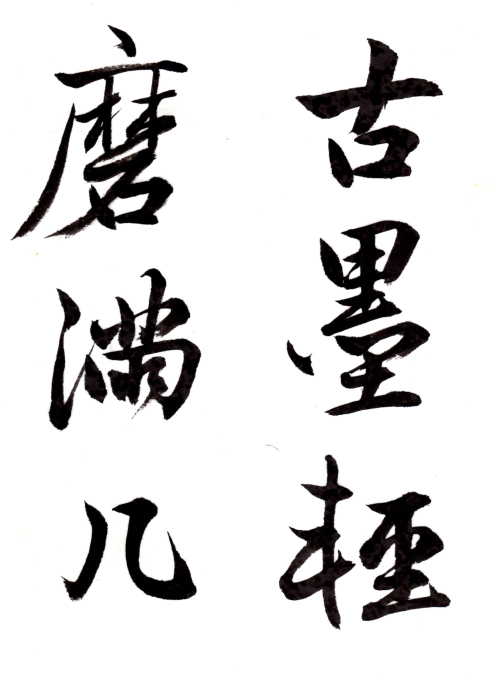 古墨輕
磨滿几